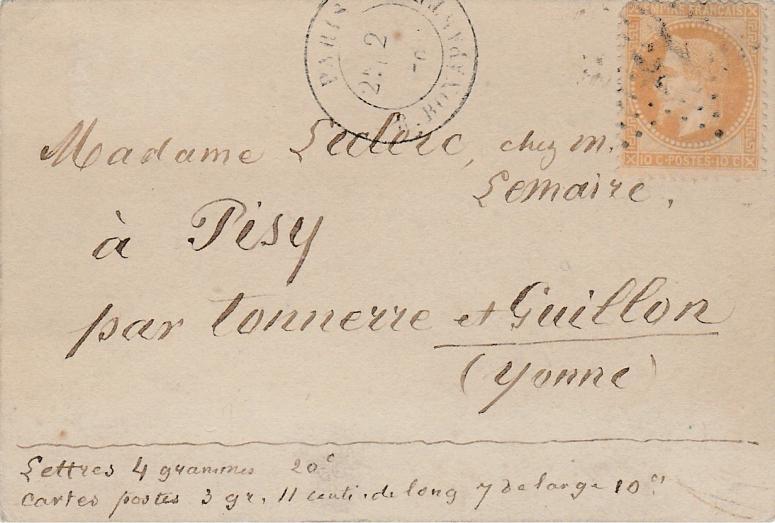 PARIS R. BONAPARTE
2
EMPIRE FRANÇAIS
10 C · POSTES · 10 C
Madame Leclerc, chez m.
Lemaire,
à Pisy
par Tonnerre et Guillon
(Yonne)
Lettres 4 grammes 20c
cartes postes 3 gr. 11 centi. de long 7 de large 10c